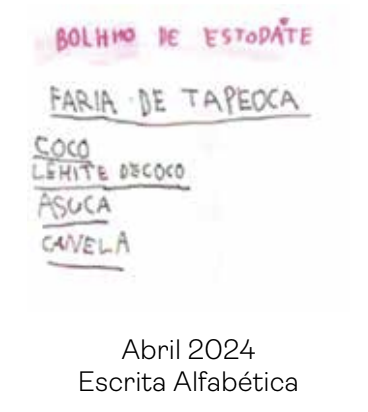 BOLHNO DE ESTODATE
FARIA DE TAPEOCA
COCO
LEHITE DECOCO
ASUCA
CANELA
Abril 2024
Escrita Alfabética